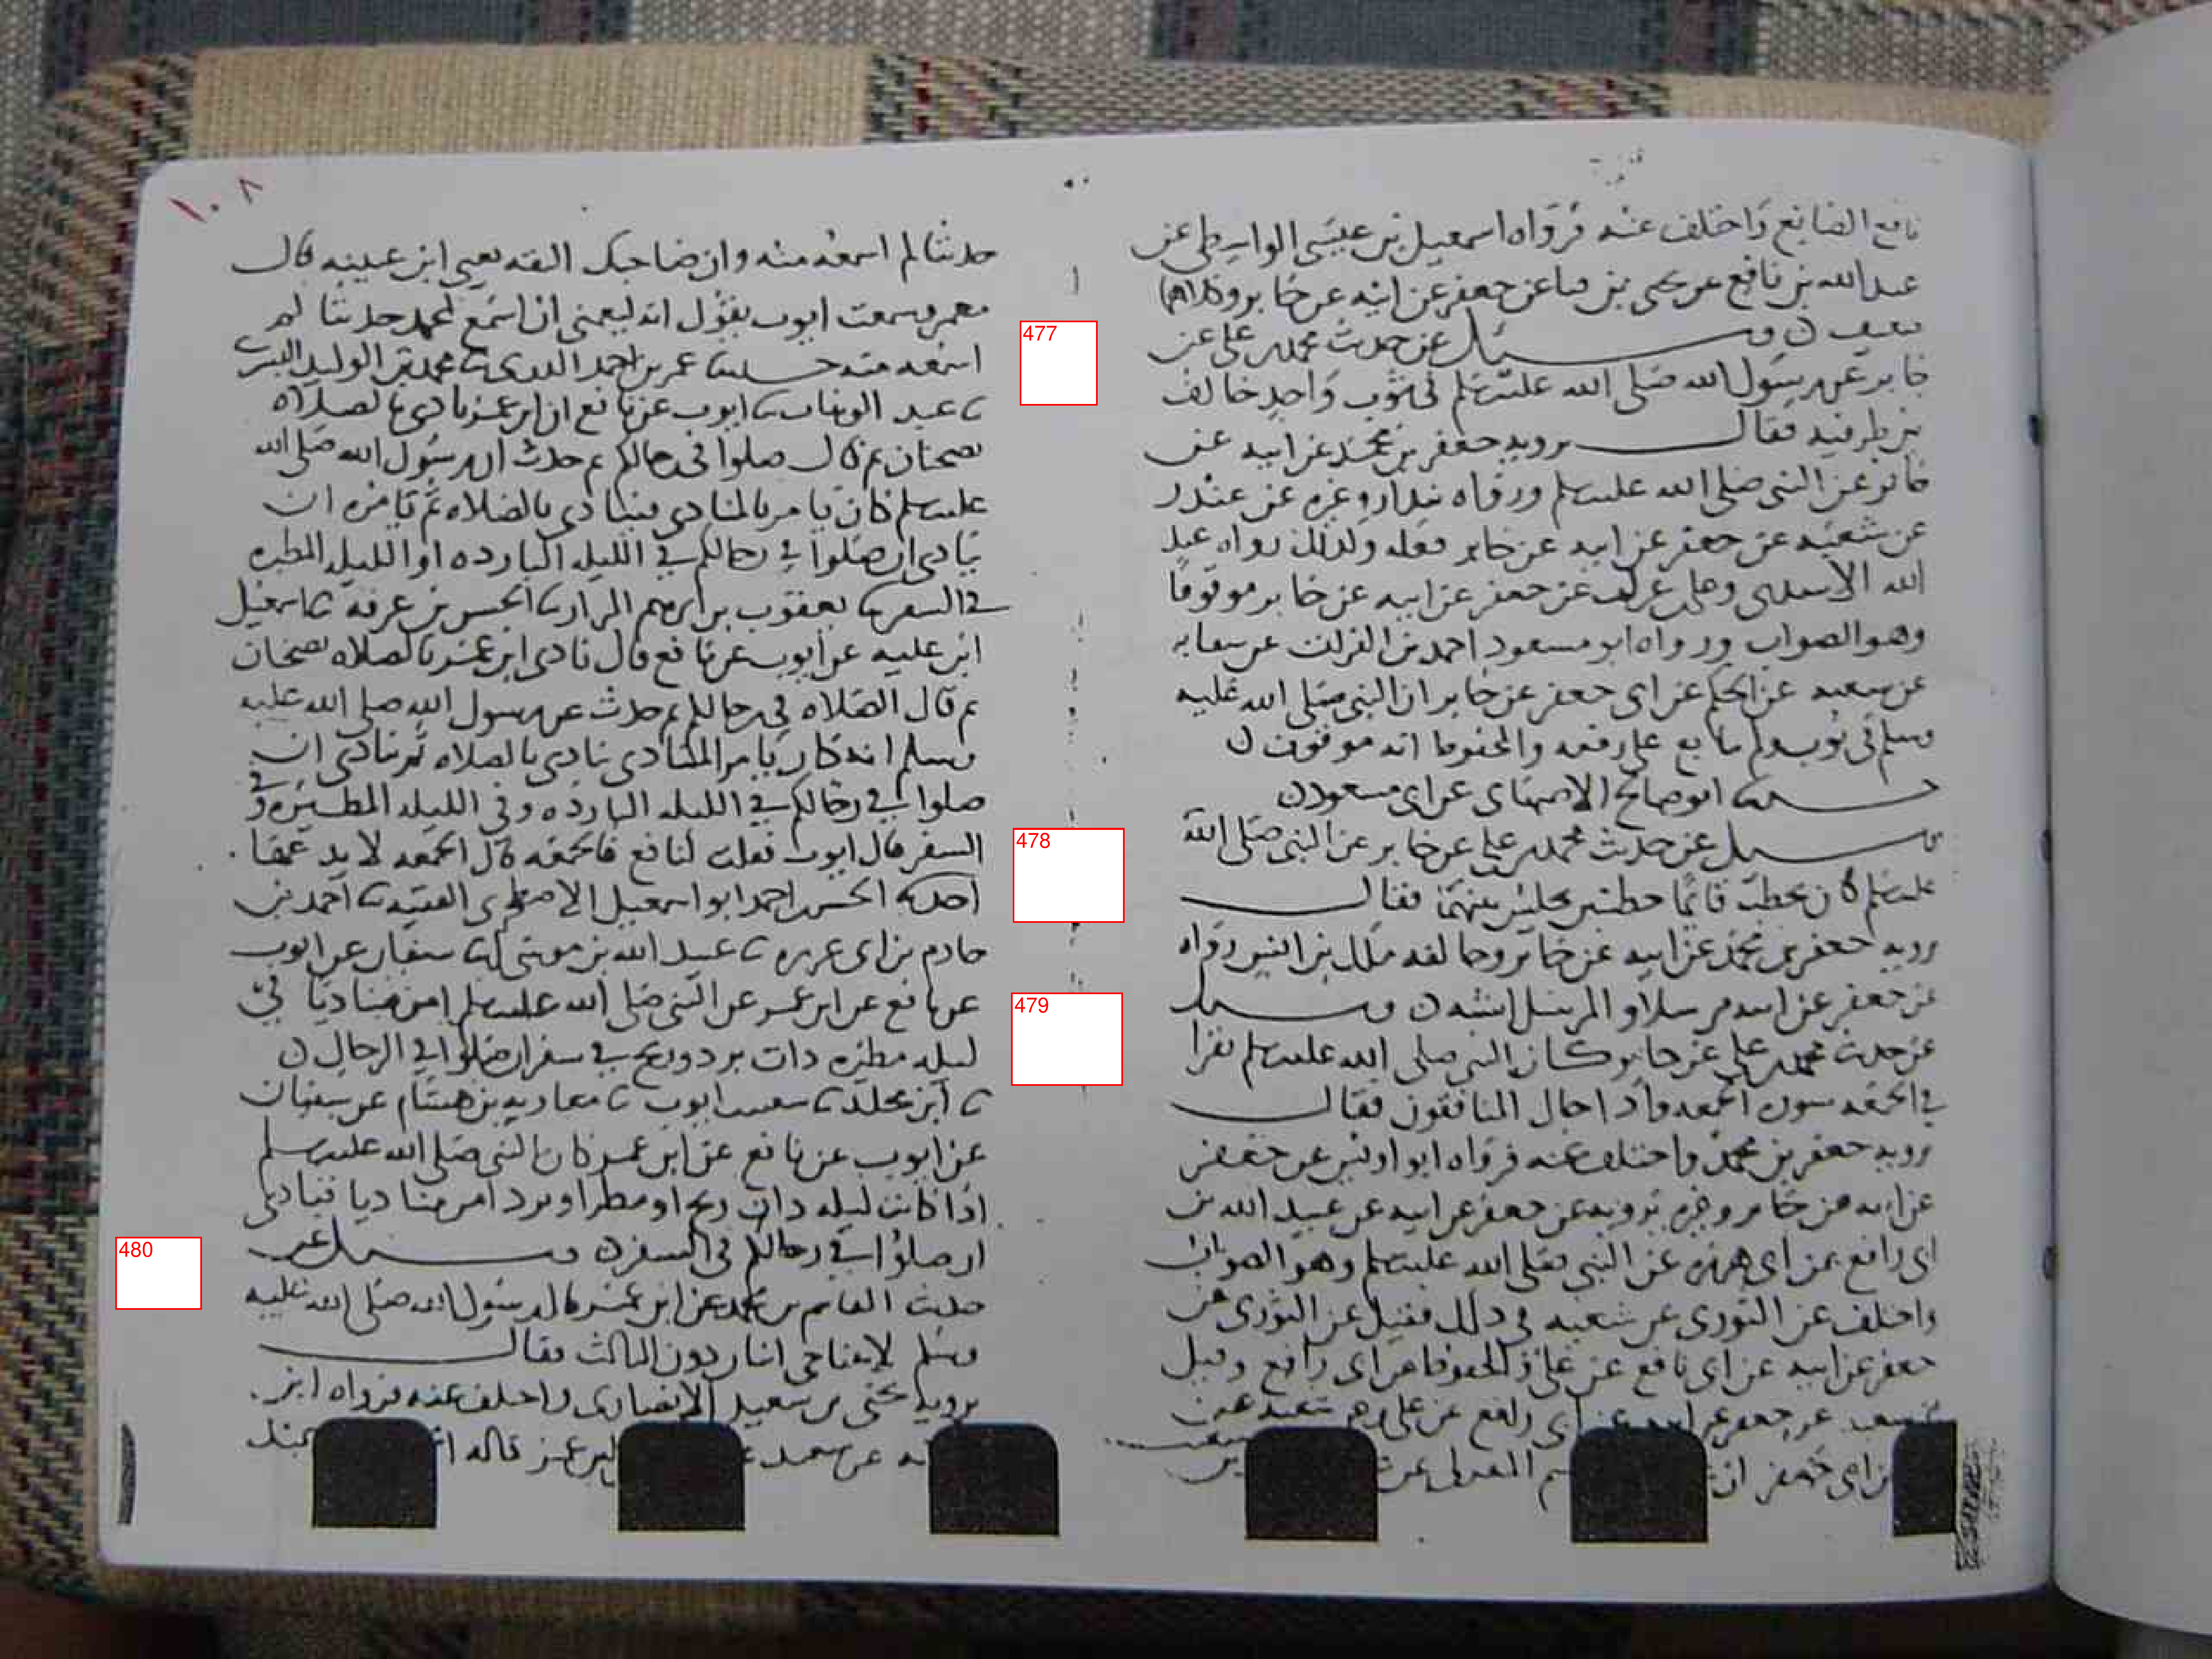 نافع الصايغ واختلف عنه فرواه اسمعيل بن عيسى الواسطي عن
عبد الله بن نافع عن يحيى بن عن جعفر عن ابيه عن جابر
وسيل عن حديث محمد بن علي عن
جابر عن رسول الله صلى الله عليه وسلم في ثوب واحد خالف
بين طرفيه فقال يرويه جعفر بن محمد عن ابيه عن
جابر عن النبي صلى الله عليه وسلم ورواه بندار وغيره عن غندر
عن شعبه عن جعفر عن ابيه عن جابر فعله ولذلك رواه عبد
الله الاسلمي وعلي بن غراب عن جعفر عن ابيه عن جابر موقوفا
وهو الصواب ورواه ابو مسعود احمد بن الفرات عن شبابه
عن شعبه عن الحكم عن ابي جعفر عن جابر ان النبي صلى الله عليه
وسلم في ثوب ولم يتابع على رفعه والمحفوظ انه موقوف ن
حدثنا ابو صالح الاصبهاني عن ابي مسعود ن
وسيل عن حديث محمد بن علي عن جابر عن النبي صلى الله
عليه وسلم كان يخطب قائما خطبتين يجلس بينهما فقال
يرويه جعفر بن محمد عن ابيه عن جابر وخالفه ملك بن انس رواه
عن جعفر عن ابيه مرسلا و المرسل اشبه ن وسيل
عن حديث محمد بن علي عن جابر كان النبي صلى الله عليه وسلم يقرا
في الجمعه سورة الجمعه واذا جاك المنافقون فقال
يرويه جعفر بن محمد واختلف عنه فرواه ابو اويس عن جعفر
عن ابيه عن جابر وغيره يرويه عن جعفر عن ابيه عن عبيد الله بن
ابي رافع عن ابي هريره عن النبي صلى الله عليه وسلم وهو الصواب
واختلف عن الثوري عن شعبه في ذلك فقيل عن الثوري عن
جعفر عن ابيه عن ابي رافع عن علي والمحفوظ عن ابي رافع وقيل
عن جعفر عن ابيه عن ابي رافع عن علي
ابي جعفر
١٠٨
حديثا لم اسمعه منه وان صاحبك الثقه يعني ابن عيينه قال
معمر وسمعت ايوب يقول انه ليعجبني ان اسمع لمحمد حديثا لم
اسمعه منه حدثنا عمر بن احمد الدري نا محمد بن الوليد البسري
نا عبد الوهاب نا ايوب عن نافع ان ابن عمر نادى بالصلاه
بضجنان ثم قال صلوا في رحالكم ثم حدث ان رسول الله صلى الله
عليه وسلم كان يامر بالمنادي فينادي بالصلاه ثم يامره ان
ينادي ان صلوا في رحالكم في الليله البارده او الليله المطيره
في السفر نا يعقوب بن ابرهيم البزاز نا الحسن بن عرفه نا اسمعيل
ابن عليه عن ايوب عن نافع قال نادى ابن عمر بالصلاه بضجنان
ثم قال الصلاه في رحالكم ثم حدث عن رسول الله صلى الله عليه
وسلم انه كان يامر المنادي ينادي بالصلاه ثم ينادي ان
صلوا في رحالكم في الليله البارده وفي الليله المطيره في
السفر قال ايوب فقلت لنافع فالجمعه قال الجمعه لا يد عمها
احمد ابو اسمعيل الاصطخري الفقيه نا احمد بن
حازم بن ابي غرزه نا عبيد الله بن موسى نا سفيان عن ايوب
عن نافع عن ابن عمر عن النبي صلى الله عليه وسلم امر مناديا في
ليله مطيره ذات برد وريح في سفر ان صلوا في الرحال ن
نا ابن مخلد نا شعيب ايوب نا معاويه بن هشام عن سفيان
عن ايوب عن نافع عن ابن عمر كان النبي صلى الله عليه وسلم
اذا كانت ليله ذات ريح او مطر او برد امر مناديا فنادى
ان صلوا في رحالكم في السفر ن وسيل عن
حديث القاسم بن محمد عن ابن عمر قال رسول الله صلى الله عليه
وسلم لا يتناجى اثنان دون الثالث فقال
يرويه يحيى بن سعيد الانصاري واختلف عنه فرواه ابن
عن سعيد عن ابن عمر قاله
477
478
479
480